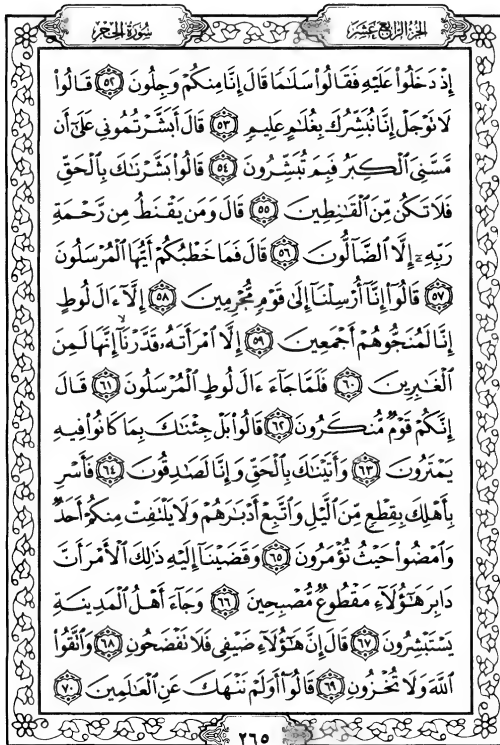 سُورَةُ الحِجْرِ
الجُزْءُ الرَّابِعَ عَشَرَ
إِذْ دَخَلُوا۟ عَلَيْهِ فَقَالُوا۟ سَلَٰمًا قَالَ إِنَّا مِنكُمْ وَجِلُونَ ۝٥٢ قَالُوا۟
لَا تَوْجَلْ إِنَّا نُبَشِّرُكَ بِغُلَٰمٍ عَلِيمٍ ۝٥٣ قَالَ أَبَشَّرْتُمُونِى عَلَىٰٓ أَن
مَّسَّنِىَ ٱلْكِبَرُ فَبِمَ تُبَشِّرُونَ ۝٥٤ قَالُوا۟ بَشَّرْنَٰكَ بِٱلْحَقِّ
فَلَا تَكُن مِّنَ ٱلْقَٰنِطِينَ ۝٥٥ قَالَ وَمَن يَقْنَطُ مِن رَّحْمَةِ
رَبِّهِۦٓ إِلَّا ٱلضَّآلُّونَ ۝٥٦ قَالَ فَمَا خَطْبُكُمْ أَيُّهَا ٱلْمُرْسَلُونَ
۝٥٧ قَالُوٓا۟ إِنَّآ أُرْسِلْنَآ إِلَىٰ قَوْمٍ مُّجْرِمِينَ ۝٥٨ إِلَّآ ءَالَ لُوطٍ
إِنَّا لَمُنَجُّوهُمْ أَجْمَعِينَ ۝٥٩ إِلَّا ٱمْرَأَتَهُۥ قَدَّرْنَآ إِنَّهَا لَمِنَ
ٱلْغَٰبِرِينَ ۝٦٠ فَلَمَّا جَآءَ ءَالَ لُوطٍ ٱلْمُرْسَلُونَ ۝٦١ قَالَ
إِنَّكُمْ قَوْمٌ مُّنكَرُونَ ۝٦٢ قَالُوا۟ بَلْ جِئْنَٰكَ بِمَا كَانُوا۟ فِيهِ
يَمْتَرُونَ ۝٦٣ وَأَتَيْنَٰكَ بِٱلْحَقِّ وَإِنَّا لَصَٰدِقُونَ ۝٦٤ فَأَسْرِ
بِأَهْلِكَ بِقِطْعٍ مِّنَ ٱلَّيْلِ وَٱتَّبِعْ أَدْبَٰرَهُمْ وَلَا يَلْتَفِتْ مِنكُمْ أَحَدٌ
وَٱمْضُوا۟ حَيْثُ تُؤْمَرُونَ ۝٦٥ وَقَضَيْنَآ إِلَيْهِ ذَٰلِكَ ٱلْأَمْرَ أَنَّ
دَابِرَ هَٰٓؤُلَآءِ مَقْطُوعٌ مُّصْبِحِينَ ۝٦٦ وَجَآءَ أَهْلُ ٱلْمَدِينَةِ
يَسْتَبْشِرُونَ ۝٦٧ قَالَ إِنَّ هَٰٓؤُلَآءِ ضَيْفِى فَلَا تَفْضَحُونِ ۝٦٨ وَٱتَّقُوا۟
ٱللَّهَ وَلَا تُخْزُونِ ۝٦٩ قَالُوٓا۟ أَوَلَمْ نَنْهَكَ عَنِ ٱلْعَٰلَمِينَ ۝٧٠
٢٦٥